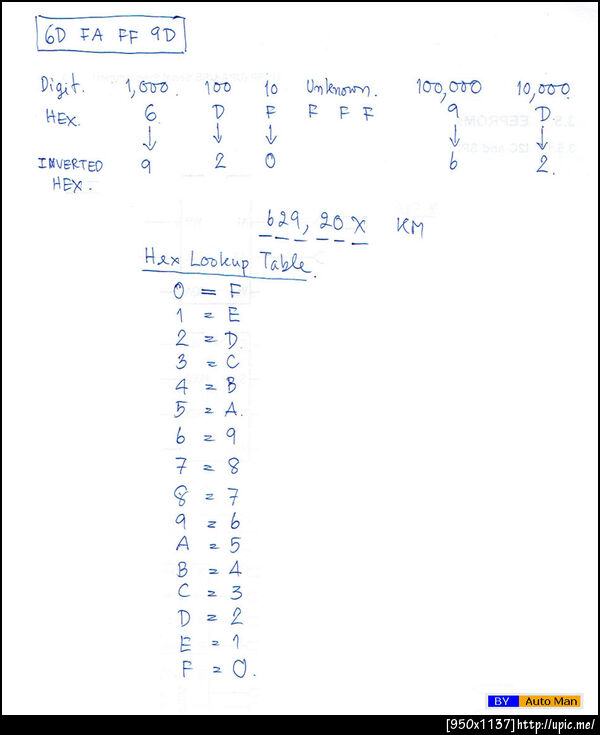 6D FA FF 9D
Digit. 1,000. 100 10 Unknown. 100,000 10,000
HEX. 6 D F F F F 9 D
INVERTED 9 2 0 6 2
HEX.
629, 20X KM
Hex Lookup Table.
0 = F
1 = E
2 = D
3 = C
4 = B
5 = A.
6 = 9
7 = 8
8 = 7
9 = 6
A = 5
B = 4
C = 3
D = 2
E = 1
F = 0.
BY Auto Man
[950x1137]http://upic.me/